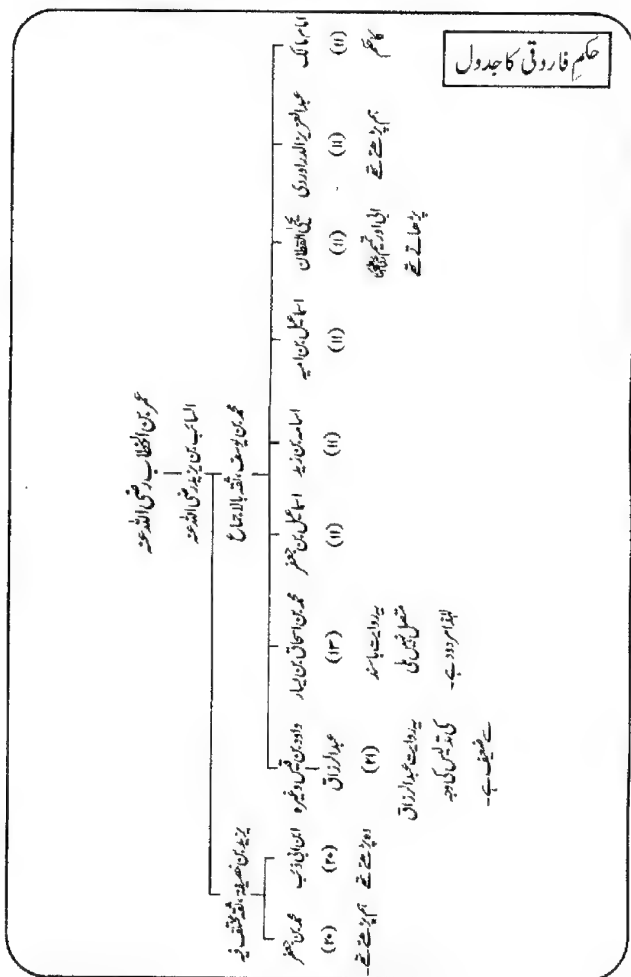 حکمِ فاروقی کا جدول
عمر بن الخطاب رضی اللہ عنہ
السائب بن یزید رضی اللہ عنہ
محمد بن یوسف، ثقہ بالاجماع
امام مالک
(۱۱)
کا حکم
عبدالعزیز الدراوردی
(۱۱)
ہم پڑھتے تھے
یحییٰ القطان
(۱۱)
ابی اور تمیم
پڑھاتے تھے
اسماعیل بن امیہ
(۱۱)
اسامہ بن زید
(۱۱)
اسماعیل بن جعفر
(۱۱)
محمد بن اسحاق بن یسار
(۱۳)
یہ روایت باسند
متصل نہیں ملی
لہٰذا مردود ہے۔
داود بن قیس وغیرہ
عبدالرزاق
(۲۱)
یہ روایت عبدالرزاق
کی تدلیس کی وجہ
سے ضعیف ہے۔
یزید بن خصیفہ، ثقہ مختلف فیہ
ابن ابی ذئب
(۲۰)
وہ پڑھتے تھے
محمد بن جعفر
(۲۰)
ہم پڑھتے تھے۔